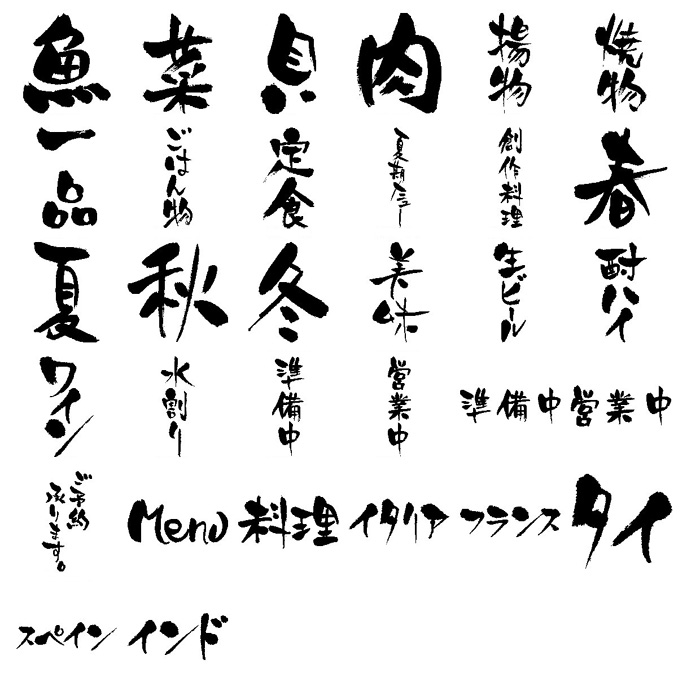 魚
菜
貝
肉
揚物
焼物
一品
ごはん物
定食
夏期メニュー
創作料理
春
夏
秋
冬
美味
生ビール
酎ハイ
ワイン
水割り
準備中
営業中
準備中
営業中
ご予約
承ります。
Menu
料理
イタリア
フランス
タイ
スペイン
インド